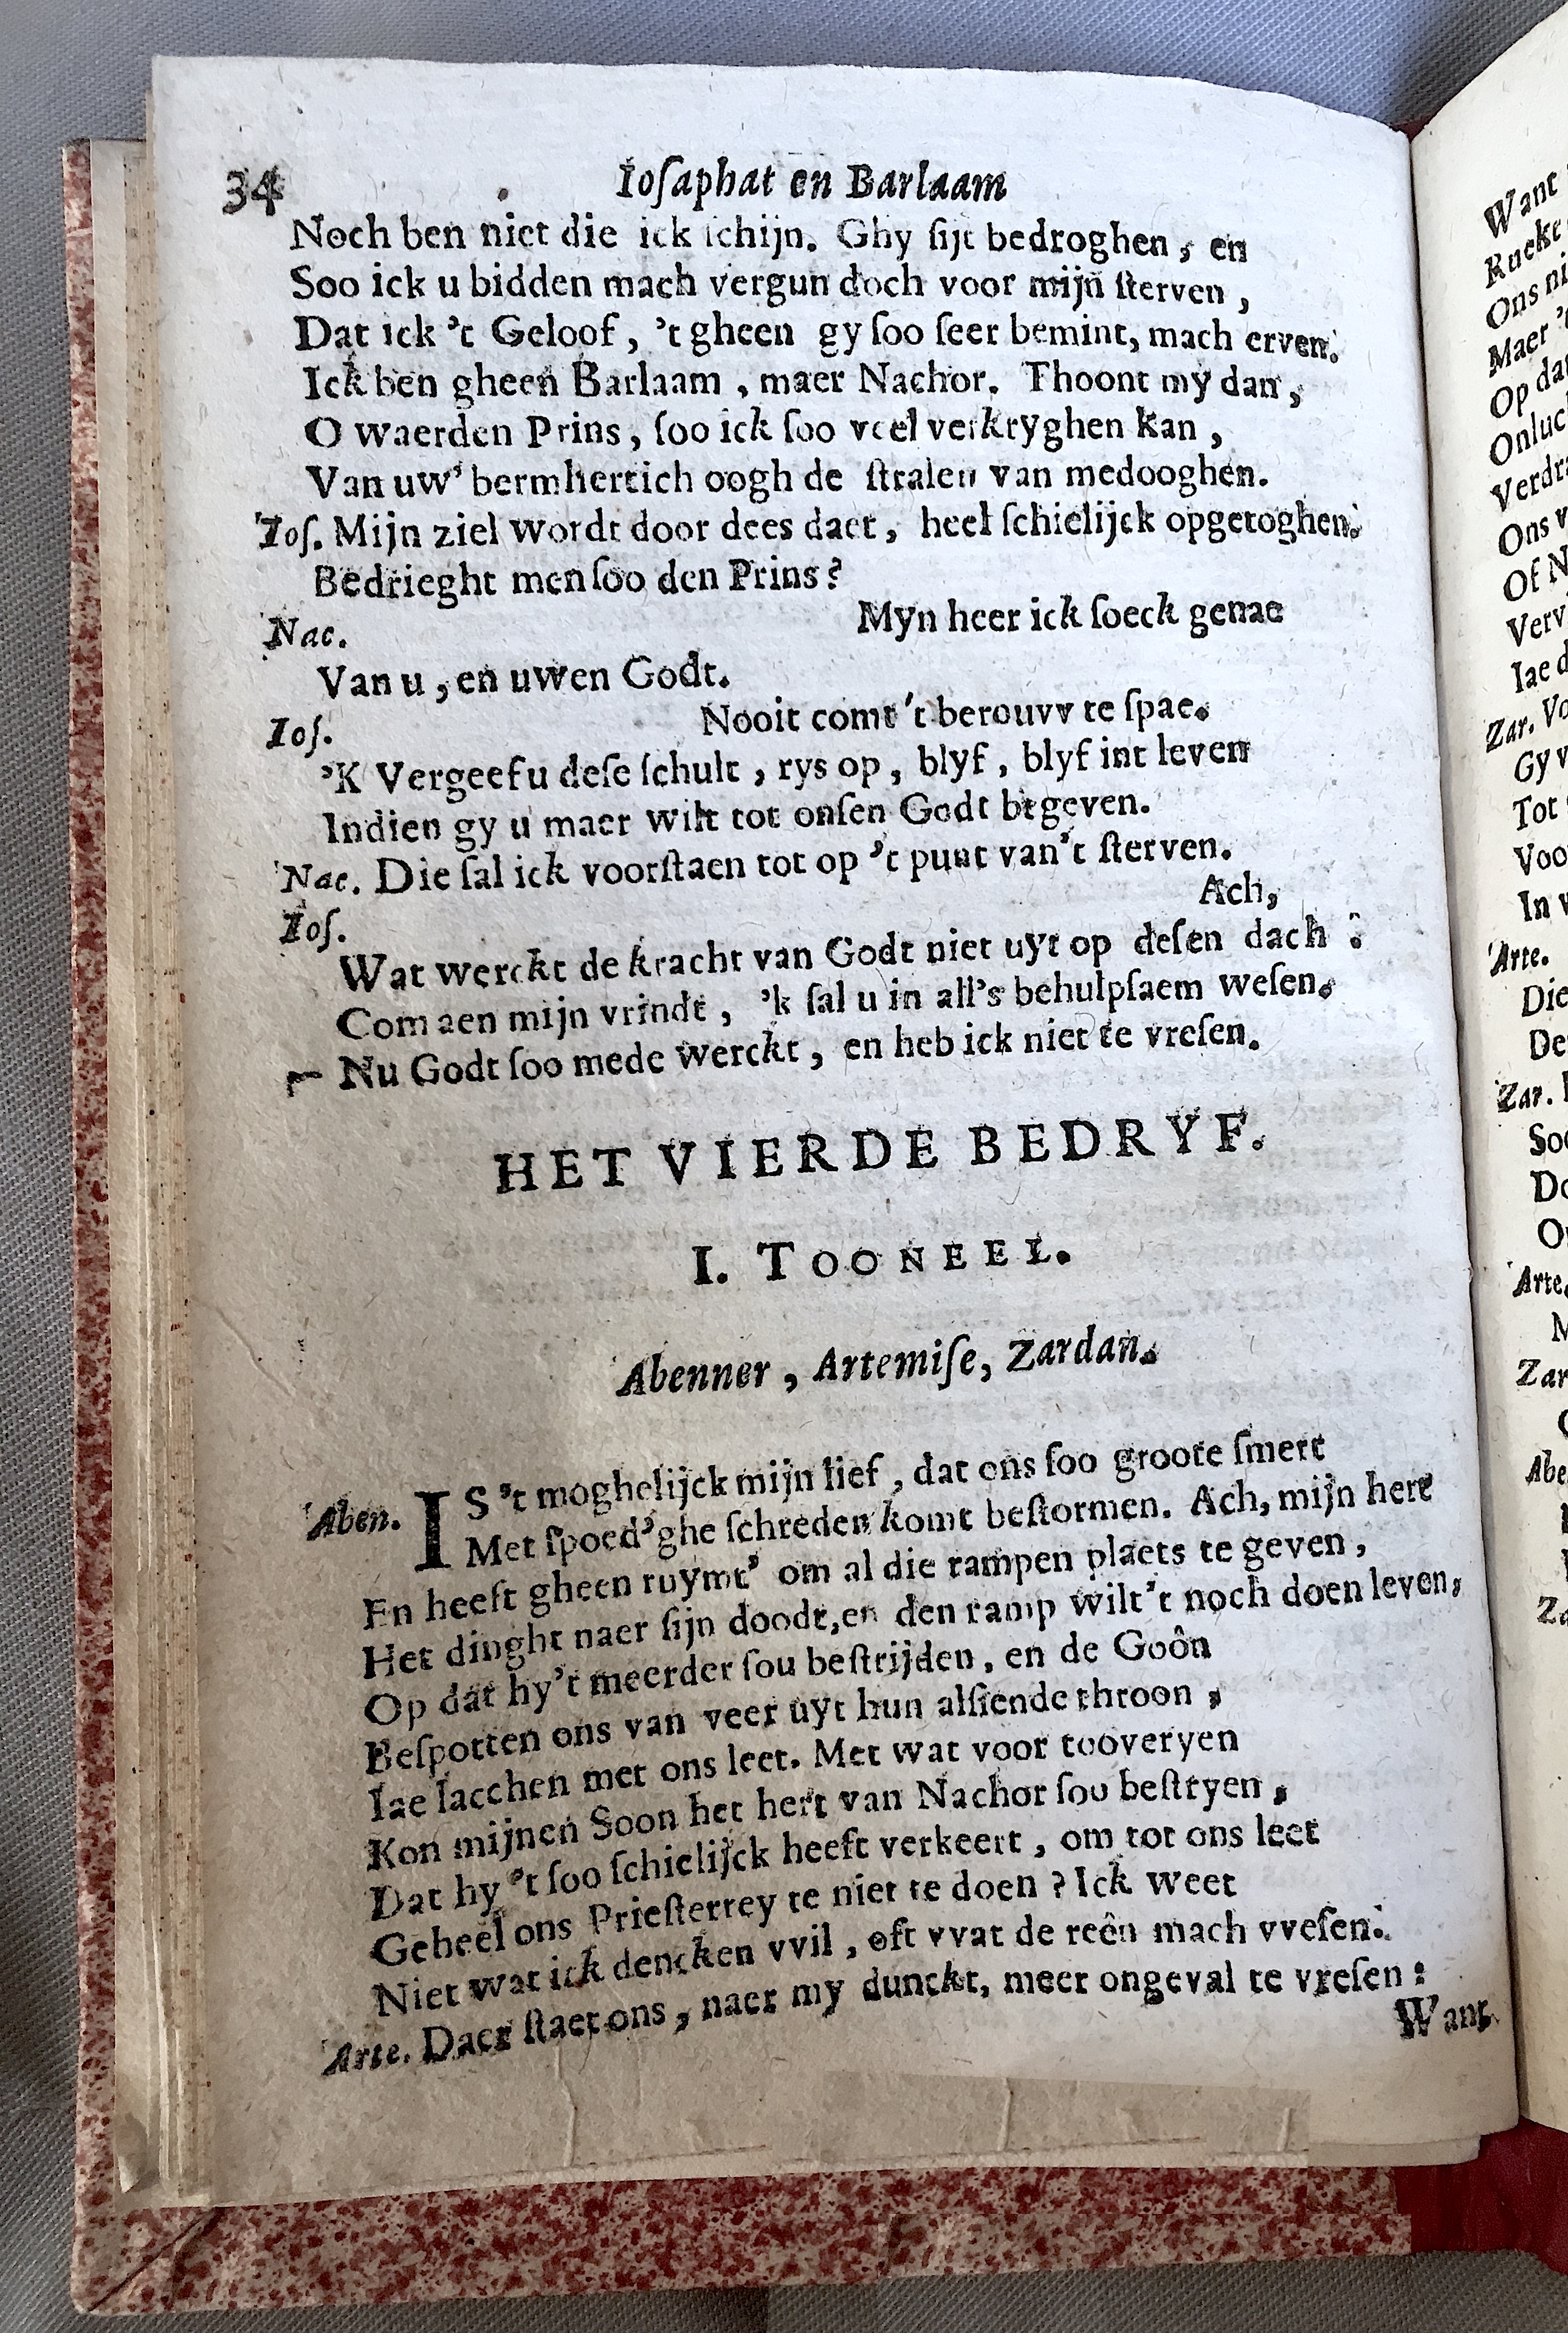 34 Ioſaphat en Barlaam
Noch ben niet die ick ſchijn. Ghy ſijt bedroghen, en
Soo ick u bidden mach vergun doch voor mijn ſterven,
Dat ick 't Geloof, 't gheen gy ſoo ſeer bemint, mach erven.
Ick ben gheen Barlaam, maer Nachor. Thoont my dan,
O waerden Prins, ſoo ick ſoo veel verkryghen kan,
Van uw' bermhertich oogh de ſtralen van medooghen.
Ioſ. Mijn ziel wordt door dees daet, heel ſchielijck opgetoghen.
Bedrieght men ſoo den Prins?
Nac. Myn heer ick ſoeck genae
Van u, en uwen Godt.
Ioſ. Nooit comt 't berouvv te ſpae.
'K Vergeef u deſe ſchult, rys op, blyf, blyf int leven
Indien gy u maer wilt tot onſen Godt begeven.
Nac. Die ſal ick voorſtaen tot op 't punt van't ſterven.
Ioſ. Ach,
Wat werckt de kracht van Godt niet uyt op deſen dach:
Com aen mijn vrindt, 'k ſal u in all's behulpſaem weſen.
Nu Godt ſoo mede werckt, en heb ick niet te vreſen.
HET VIERDE BEDRYF.
I. TOONEEL.
Abenner, Artemiſe, Zardan.
Aben. IS 't moghelijck mijn lief, dat ons ſoo groote ſmert
Met ſpoed'ghe ſchreden komt beſtormen. Ach, mijn hert
En heeft gheen ruymt' om al die rampen plaets te geven,
Het dinght naer ſijn doodt, en den ramp wilt't noch doen leven,
Op dat hy't meerder ſou beſtrijden, en de Goôn
Beſpotten ons van veer uyt hun alſiende throon,
Iae lacchen met ons leet. Met wat voor tooveryen
Kon mijnen Soon het hert van Nachor ſou beſtryen,
Dat hy 't ſoo ſchielijck heeft verkeert, om tot ons leet
Geheel ons Prieſterrey te niet te doen? Ick weet
Niet wat ick dencken vvil, oft vvat de reên mach vveſen.
Arte. Daer ſtaet ons, naer my dunckt, meer ongeval te vreſen:
Want
Want
Rucke
Ons ni
Maer
Op dat
Onluc
Verdr
Ons v
Of N
Verv
Iae d
Zar. Vo
Gy v
Tot
Voo
In v
Arte.
Die
De
Zar.
Soo
Do
O
Arte.
M
Zar
Abe
Za